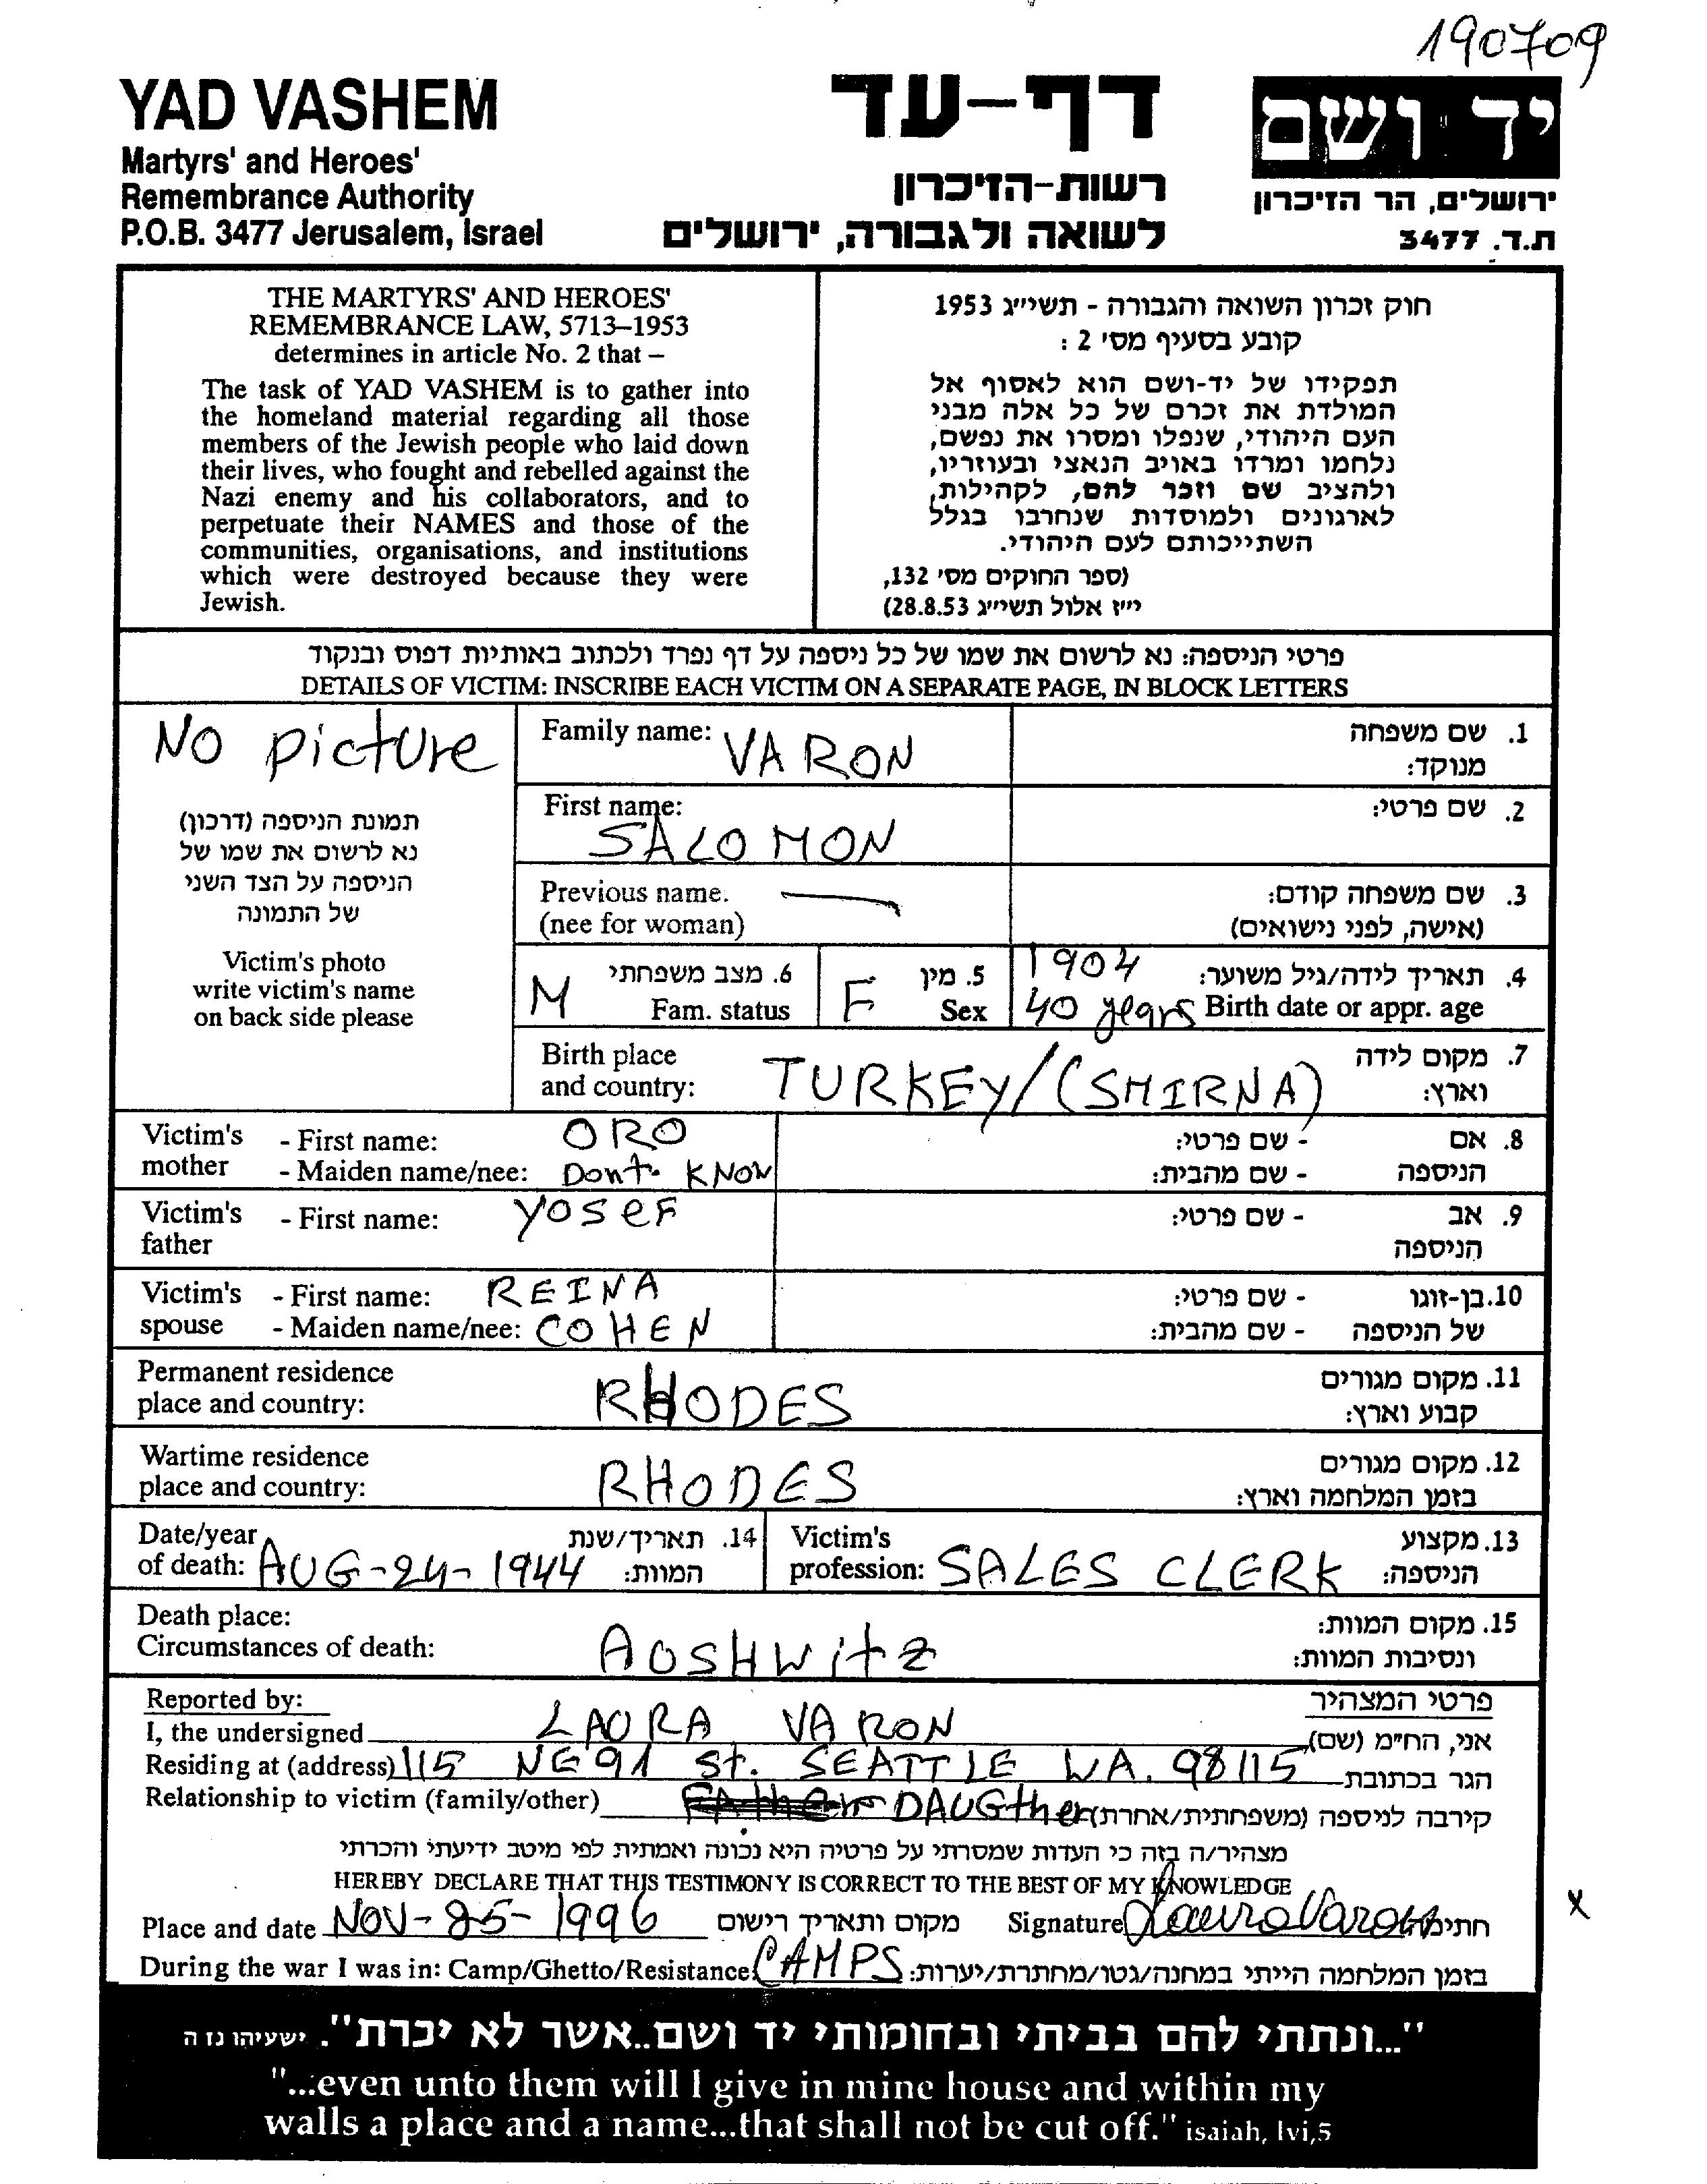 190709
YAD VASHEM
Martyrs' and Heroes'
Remembrance Authority
P.O.B. 3477 Jerusalem, Israel
דף-עד
רשות-הזיכרון
לשואה ולגבורה, ירושלים
יד ושם
ירושלים, הר הזיכרון
ת.ד. 3477
THE MARTYRS' AND HEROES'
REMEMBRANCE LAW, 5713–1953
determines in article No. 2 that –
The task of YAD VASHEM is to gather into
the homeland material regarding all those
members of the Jewish people who laid down
their lives, who fought and rebelled against the
Nazi enemy and his collaborators, and to
perpetuate their NAMES and those of the
communities, organisations, and institutions
which were destroyed because they were
Jewish.
חוק זכרון השואה והגבורה - תשי״ג 1953
קובע בסעיף מס׳ 2 :
תפקידו של יד-ושם הוא לאסוף אל
המולדת את זכרם של כל אלה מבני
העם היהודי, שנפלו ומסרו את נפשם,
נלחמו ומרדו באויב הנאצי ובעוזריו,
ולהציב שם וזכר להם, לקהילות,
לארגונים ולמוסדות שנחרבו בגלל
השתייכותם לעם היהודי.
(ספר החוקים מס׳ 132,
י״ז אלול תשי״ג 28.8.53)
פרטי הניספה: נא לרשום את שמו של כל ניספה על דף נפרד ולכתוב באותיות דפוס ובנקוד
DETAILS OF VICTIM: INSCRIBE EACH VICTIM ON A SEPARATE PAGE, IN BLOCK LETTERS
No picture
תמונת הניספה (דרכון)
נא לרשום את שמו של
הניספה על הצד השני
של התמונה
Victim's photo
write victim's name
on back side please
Family name: VARON
1. שם משפחה
מנוקד:
First name: SALOMON
2. שם פרטי:
Previous name.
(nee for woman)
3. שם משפחה קודם:
(אישה, לפני נישואים)
M 6. מצב משפחתי
Fam. status
F 5. מין
Sex
1904 4. תאריך לידה/גיל משוער:
40 years Birth date or appr. age
Birth place
and country: TURKEY/(SMIRNA)
7. מקום לידה
וארץ:
Victim's - First name: ORO
mother - Maiden name/nee: Dont KNOW
8. אם - שם פרטי:
הניספה - שם מהבית:
Victim's - First name: YOSEF
father
9. אב - שם פרטי:
הניספה
Victim's - First name: REINA
spouse - Maiden name/nee: COHEN
10. בן-זוגו - שם פרטי:
של הניספה - שם מהבית:
Permanent residence
place and country: RHODES
11. מקום מגורים
קבוע וארץ:
Wartime residence
place and country: RHODES
12. מקום מגורים
בזמן המלחמה וארץ:
Date/year
of death: AUG-24-1944
14. תאריך/שנת
המוות:
Victim's
profession: SALES CLERK
13. מקצוע
הניספה:
Death place:
Circumstances of death: AOSHWitz
15. מקום המוות:
ונסיבות המוות:
Reported by: פרטי המצהיר
I, the undersigned LAURA VARON אני, הח״מ (שם),
Residing at (address) 115 NE 91 St. SEATTLE WA. 98115 הגר בכתובת
Relationship to victim (family/other) DAUGther קירבה לניספה (משפחתית/אחרת)
מצהיר/ה בזה כי העדות שמסרתי על פרטיה היא נכונה ואמתית לפי מיטב ידיעתי והכרתי
HEREBY DECLARE THAT THIS TESTIMONY IS CORRECT TO THE BEST OF MY KNOWLEDGE
Place and date NOV-25-1996 מקום ותאריך רישום Signature Laura Varon חתימה
x
During the war I was in: Camp/Ghetto/Resistance: CAMPS בזמן המלחמה הייתי במחנה/גטו/מחתרת/יערות:
"...ונתתי להם בביתי ובחומותי יד ושם..אשר לא יכרת". ישעיהו נו ה
"...even unto them will I give in mine house and within my
walls a place and a name...that shall not be cut off." isaiah, lvi,5